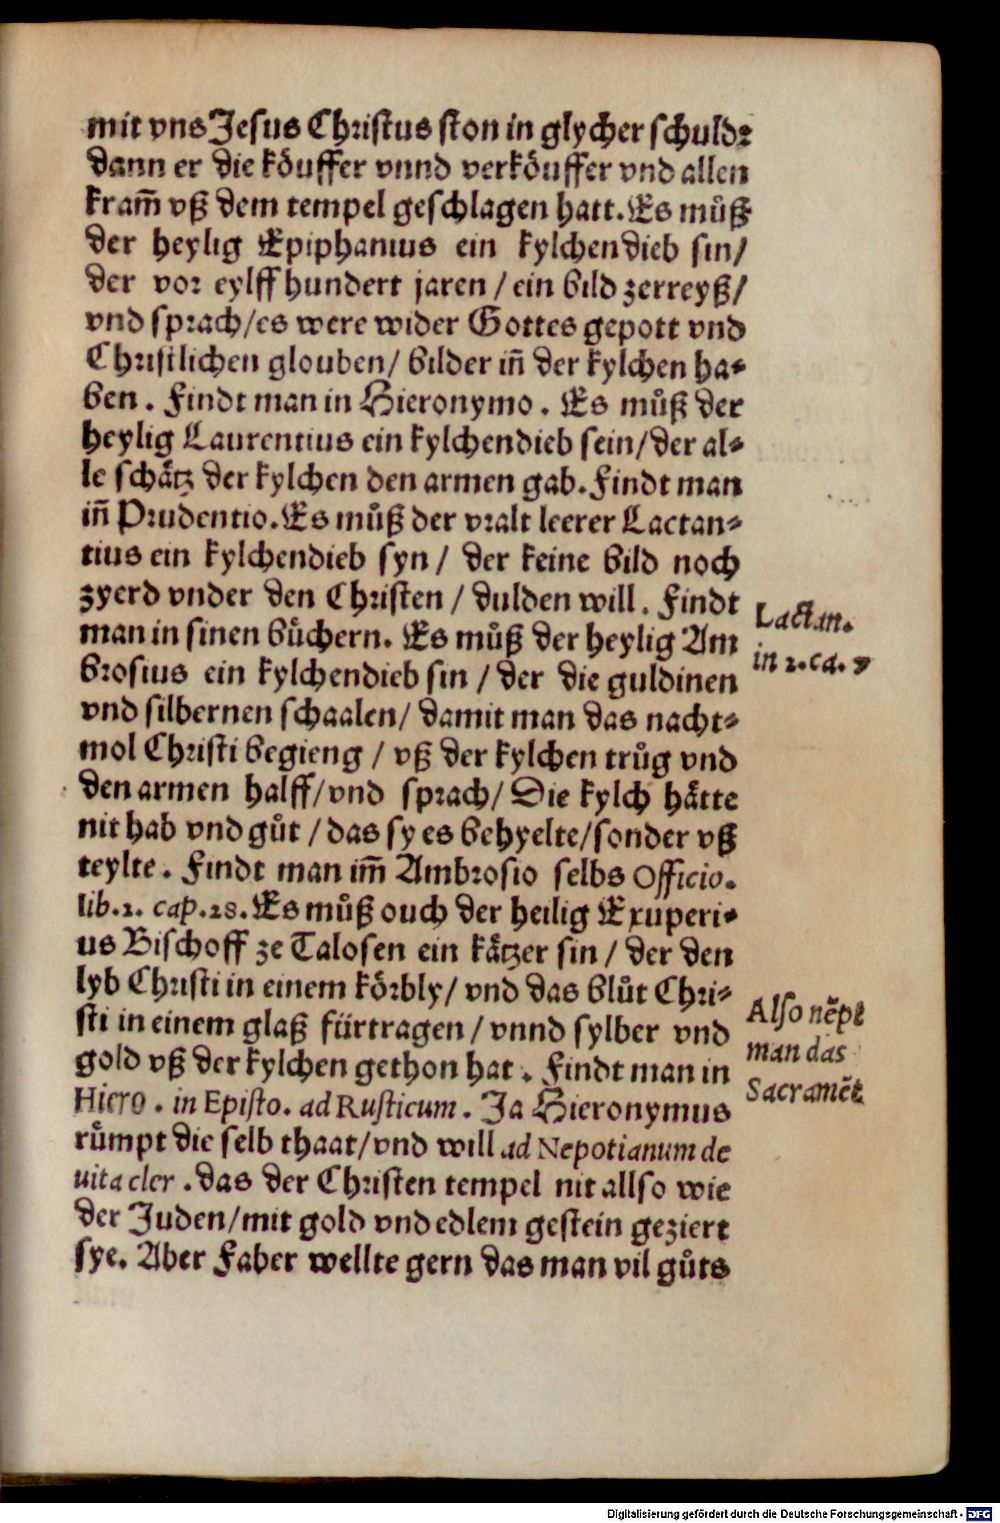 mit vns Jesus Christus ston in glycher schuld:
dann er die köuffer vnnd verköuffer vnd allen
kram̃ vß dem tempel geschlagen hatt. Es můß
der heylig Epiphanius ein kylchendieb sin/
der vor eylff hundert jaren / ein bild zerreyß/
vnd sprach/es were wider Gottes gepott vnd
Christlichen glouben/ bilder iñ der kylchen ha⸗
ben. Findt man in Hieronymo. Es můß der
heylig Laurentius ein kylchendieb sein/der al⸗
le schätz der kylchen den armen gab. Findt man
iñ Prudentio. Es můß der vralt leerer Lactan⸗
tius ein kylchendieb syn / der keine bild noch
zyerd vnder den Christen / dulden will. Findt
man in sinen bůchern. Es můß der heylig Am
brosius ein kylchendieb sin / der die guldinen
vnd silbernen schaalen/ damit man das nacht⸗
mol Christi begieng / vß der kylchen trůg vnd
den armen halff/vnd sprach/ Die kylch hätte
nit hab vnd gůt / das sy es behyelte/sonder vß
teylte. Findt man im̃ Ambrosio selbs Officio.
lib.2. cap.28. Es můß ouch der heilig Exuperi⸗
us Bischoff ze Talosen ein kätzer sin / der den
lyb Christi in einem körbly/ vnd das blůt Chri⸗
sti in einem glaß fürtragen / vnnd sylber vnd
gold vß der kylchen gethon hat. Findt man in
Hiero. in Episto. ad Rusticum. Ja Hieronymus
růmpt die selb thaat/vnd will ad Nepotianum de
uita cler. das der Christen tempel nit allso wie
der Juden/mit gold vnd edlem gestein geziert
sye. Aber Faber wellte gern das man vil gůts
Lactan.
in 2. ca. 7
Also nẽpt
man das
Sacramẽt
Digitalisierung gefördert durch die Deutsche Forschungsgemeinschaft - DFG